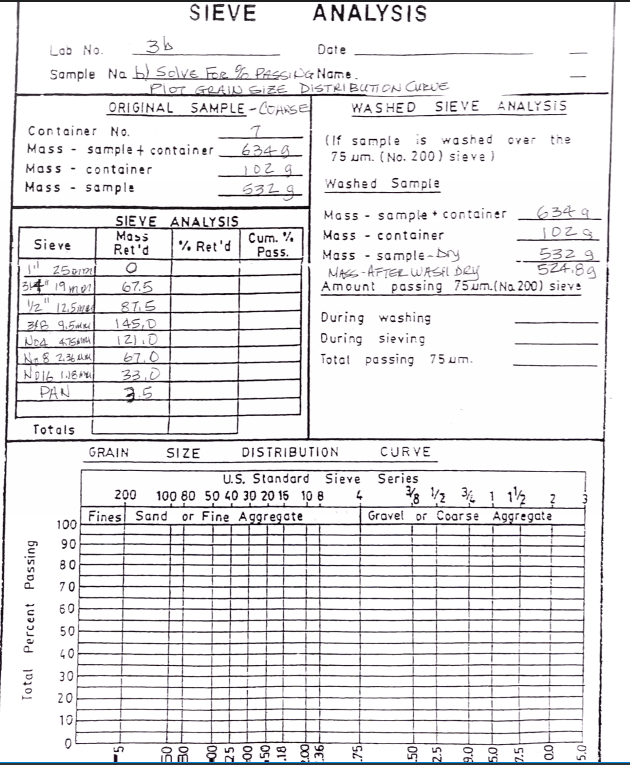 SIEVE ANALYSIS
Lab No. 3b Date
Sample No. b) SOLVE FOR % PASSING Name.
PLOT GRAIN SIZE DISTRIBUTION CURVE
ORIGINAL SAMPLE - COARSE
Container No. 7
Mass - sample + container 634 g
Mass - container 102 g
Mass - sample 532 g
WASHED SIEVE ANALYSIS
(If sample is washed over the
75 µm. (No. 200) sieve)
Washed Sample
Mass - sample + container 634 g
Mass - container 102 g
Mass - sample - DRY 532 g
MASS - AFTER WASH DRY 524.8g
Amount passing 75µm.(No.200) sieve
During washing
During sieving
Total passing 75 µm.
SIEVE ANALYSIS
Sieve Mass Ret'd % Ret'd Cum. % Pass.
1" 25mm 0
3/4" 19mm 67.5
1/2" 12.5mm 87.5
3/8 9.5mm 145.0
No4 4.75mm 121.0
No 8 2.36mm 67.0
No16 1.18mm 33.0
PAN 3.5
Totals
GRAIN SIZE DISTRIBUTION CURVE
U.S. Standard Sieve Series
200 100 80 50 40 30 20 16 10 8 4 3/8 1/2 3/4 1 1 1/2 2 3
Fines Sand or Fine Aggregate Gravel or Coarse Aggregate
Total Percent Passing
100
90
80
70
60
50
40
30
20
10
0